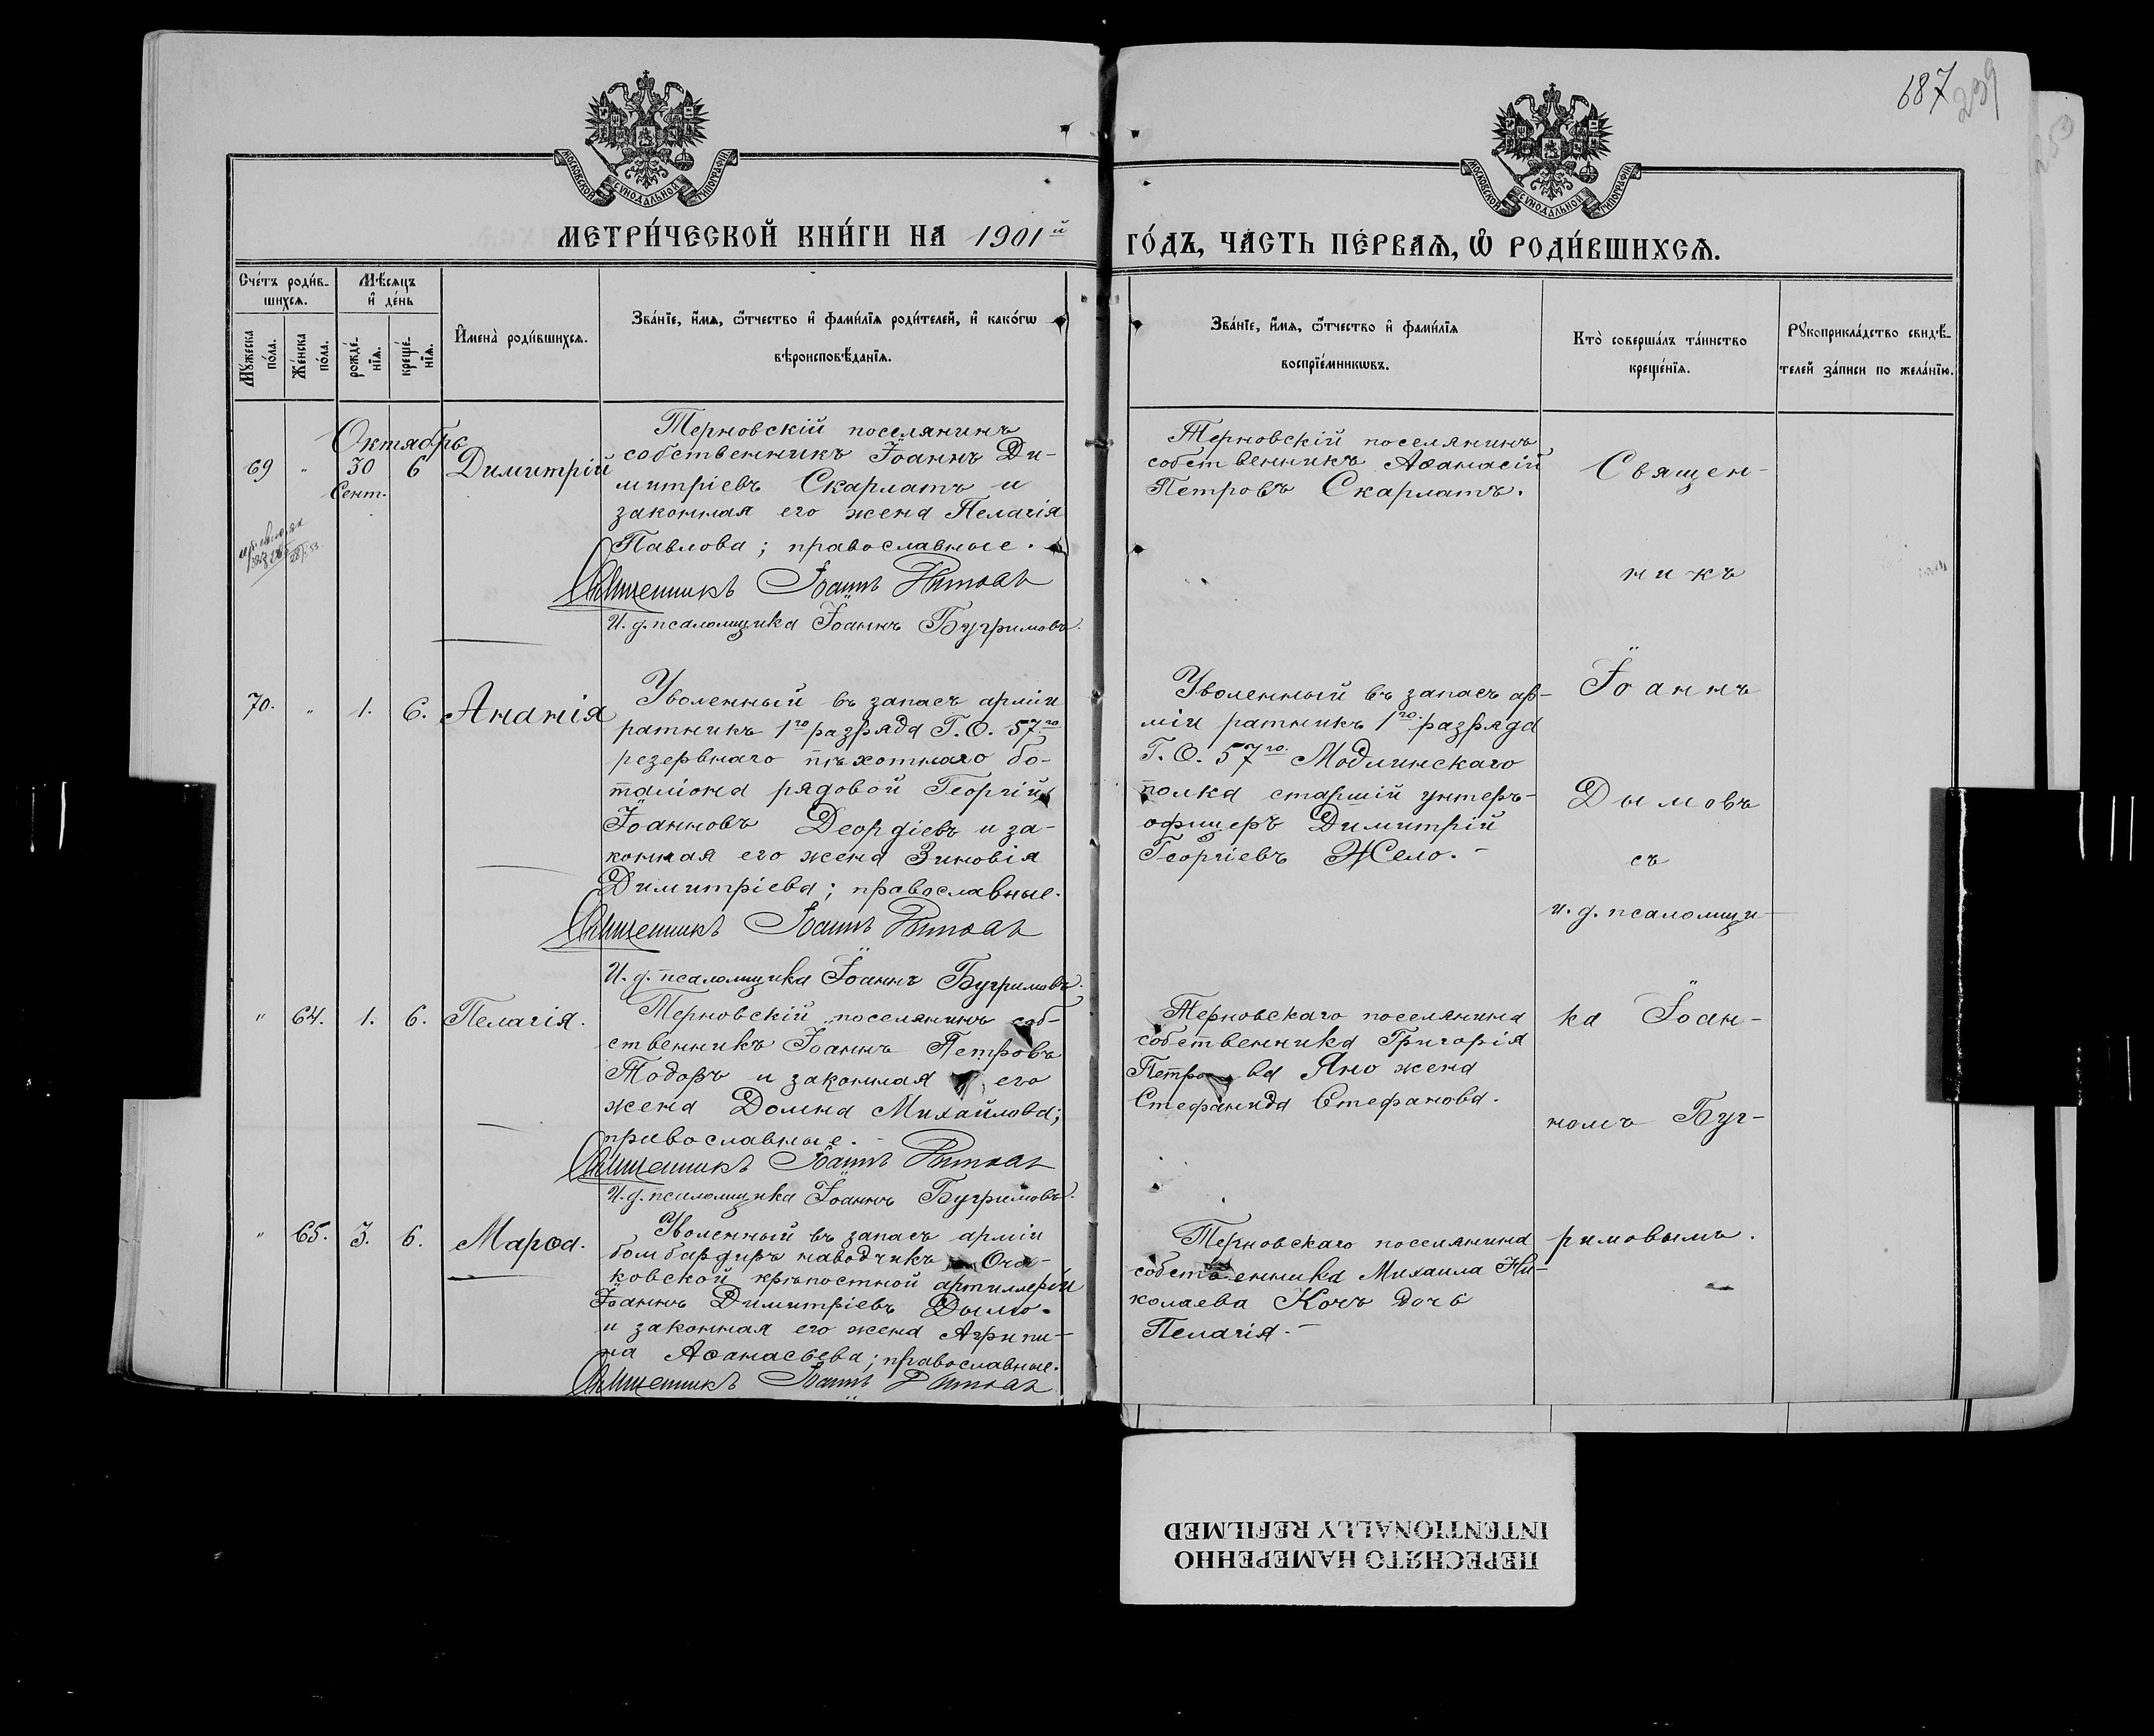 687
239
253
МОСКОВСКОЙ СѴНОДАЛЬНОЙ ТИПОГРАФІИ
МОСКОВСКОЙ СѴНОДАЛЬНОЙ ТИПОГРАФІИ
МЕТРИ́ЧЕСКОЙ КНИ́ГИ НА 1901й
ГО́ДЪ, ЧА́СТЬ ПЕ́РВАѦ, Ѿ РОДИ́ВШИХСѦ.
Сче́тъ роди́в-
шихсѧ.
Мꙋ́жеска
по́ла.
Же́нска
по́ла.
Мѣ́сѧцъ
и҆ де́нь
рожде́-
нїѧ.
креще́-
нїѧ.
И҆мена̀ роди́вшихсѧ.
Зва́нїе, и҆́мѧ, ѻ҆́тчество и҆ фами́лїѧ роди́телей, и҆ како́гѡ
вѣроисповѣ́данїѧ.
Зва́нїе, и҆́мѧ, ѻ҆́тчество и҆ фами́лїѧ
воспрїе́мникѡвъ.
Кто̀ соверша́лъ та́инство
креще́нїѧ.
Рꙋкоприкла́дство свидѣ́-
телей за́писи по жела́нїю.
Октябрь
69 " 30 6 Димитрій
Сент.
Терновскій поселянинъ
собственникъ Іоаннъ Ди-
митріевъ Скарлатъ и
законная его жена Пелагія
Павлова; православные.
Священникъ Іоаннъ Дымовъ
И. д. псаломщика Іоаннъ Бугримовъ.
Терновскій поселянинъ
собственникъ Аѳанасій
Петровъ Скарлатъ.
70. " 1. 6. Ананія
Уволенный въ запасъ арміи
ратникъ 1го разряда Г. О. 57го
резервнаго пѣхотнаго ба-
таліона рядовой Георгій
Іоанновъ Деордіевъ и за-
конная его жена Зиновія
Димитріева; православные.
Священникъ Іоаннъ Дымовъ
И. д. псаломщика Іоаннъ Бугримовъ.
Уволенный въ запасъ ар-
міи ратникъ 1го разряда
Г. О. 57го Модлинскаго
полка старшій унтеръ-
офицеръ Димитрій
Георгіевъ Жело.
" 64. 1. 6. Пелагія.
Терновскій поселянинъ соб-
ственникъ Іоаннъ Петровъ
Тодоръ и законная его
жена Домна Михайлова;
православные.
Священникъ Іоаннъ Дымовъ
И. д. псаломщика Іоаннъ Бугримовъ.
Терновскаго поселянина
собственника Григорія
Петрова Яно жена
Стефанида Стефанова.
" 65. 3. 6. Марѳа.
Уволенный въ запасъ арміи
бомбардиръ наводчикъ Оча-
ковской крѣпостной артиллеріи
Іоаннъ Димитріевъ Дымо-
и законная его жена Агрипи-
на Аѳанасьева; православные.
Священникъ Іоаннъ Дымовъ
Терновскаго поселянина
собственника Михаила Ни-
колаева Кочъ дочь
Пелагія.
Священ-
никъ
Іоаннъ
Дымовъ
съ
и. д. псаломщи-
ка Іоан-
номъ Буг-
римовымъ.
ПЕРЕСНЯТО НАМЕРЕННО
INTENTIONALLY REFILMED